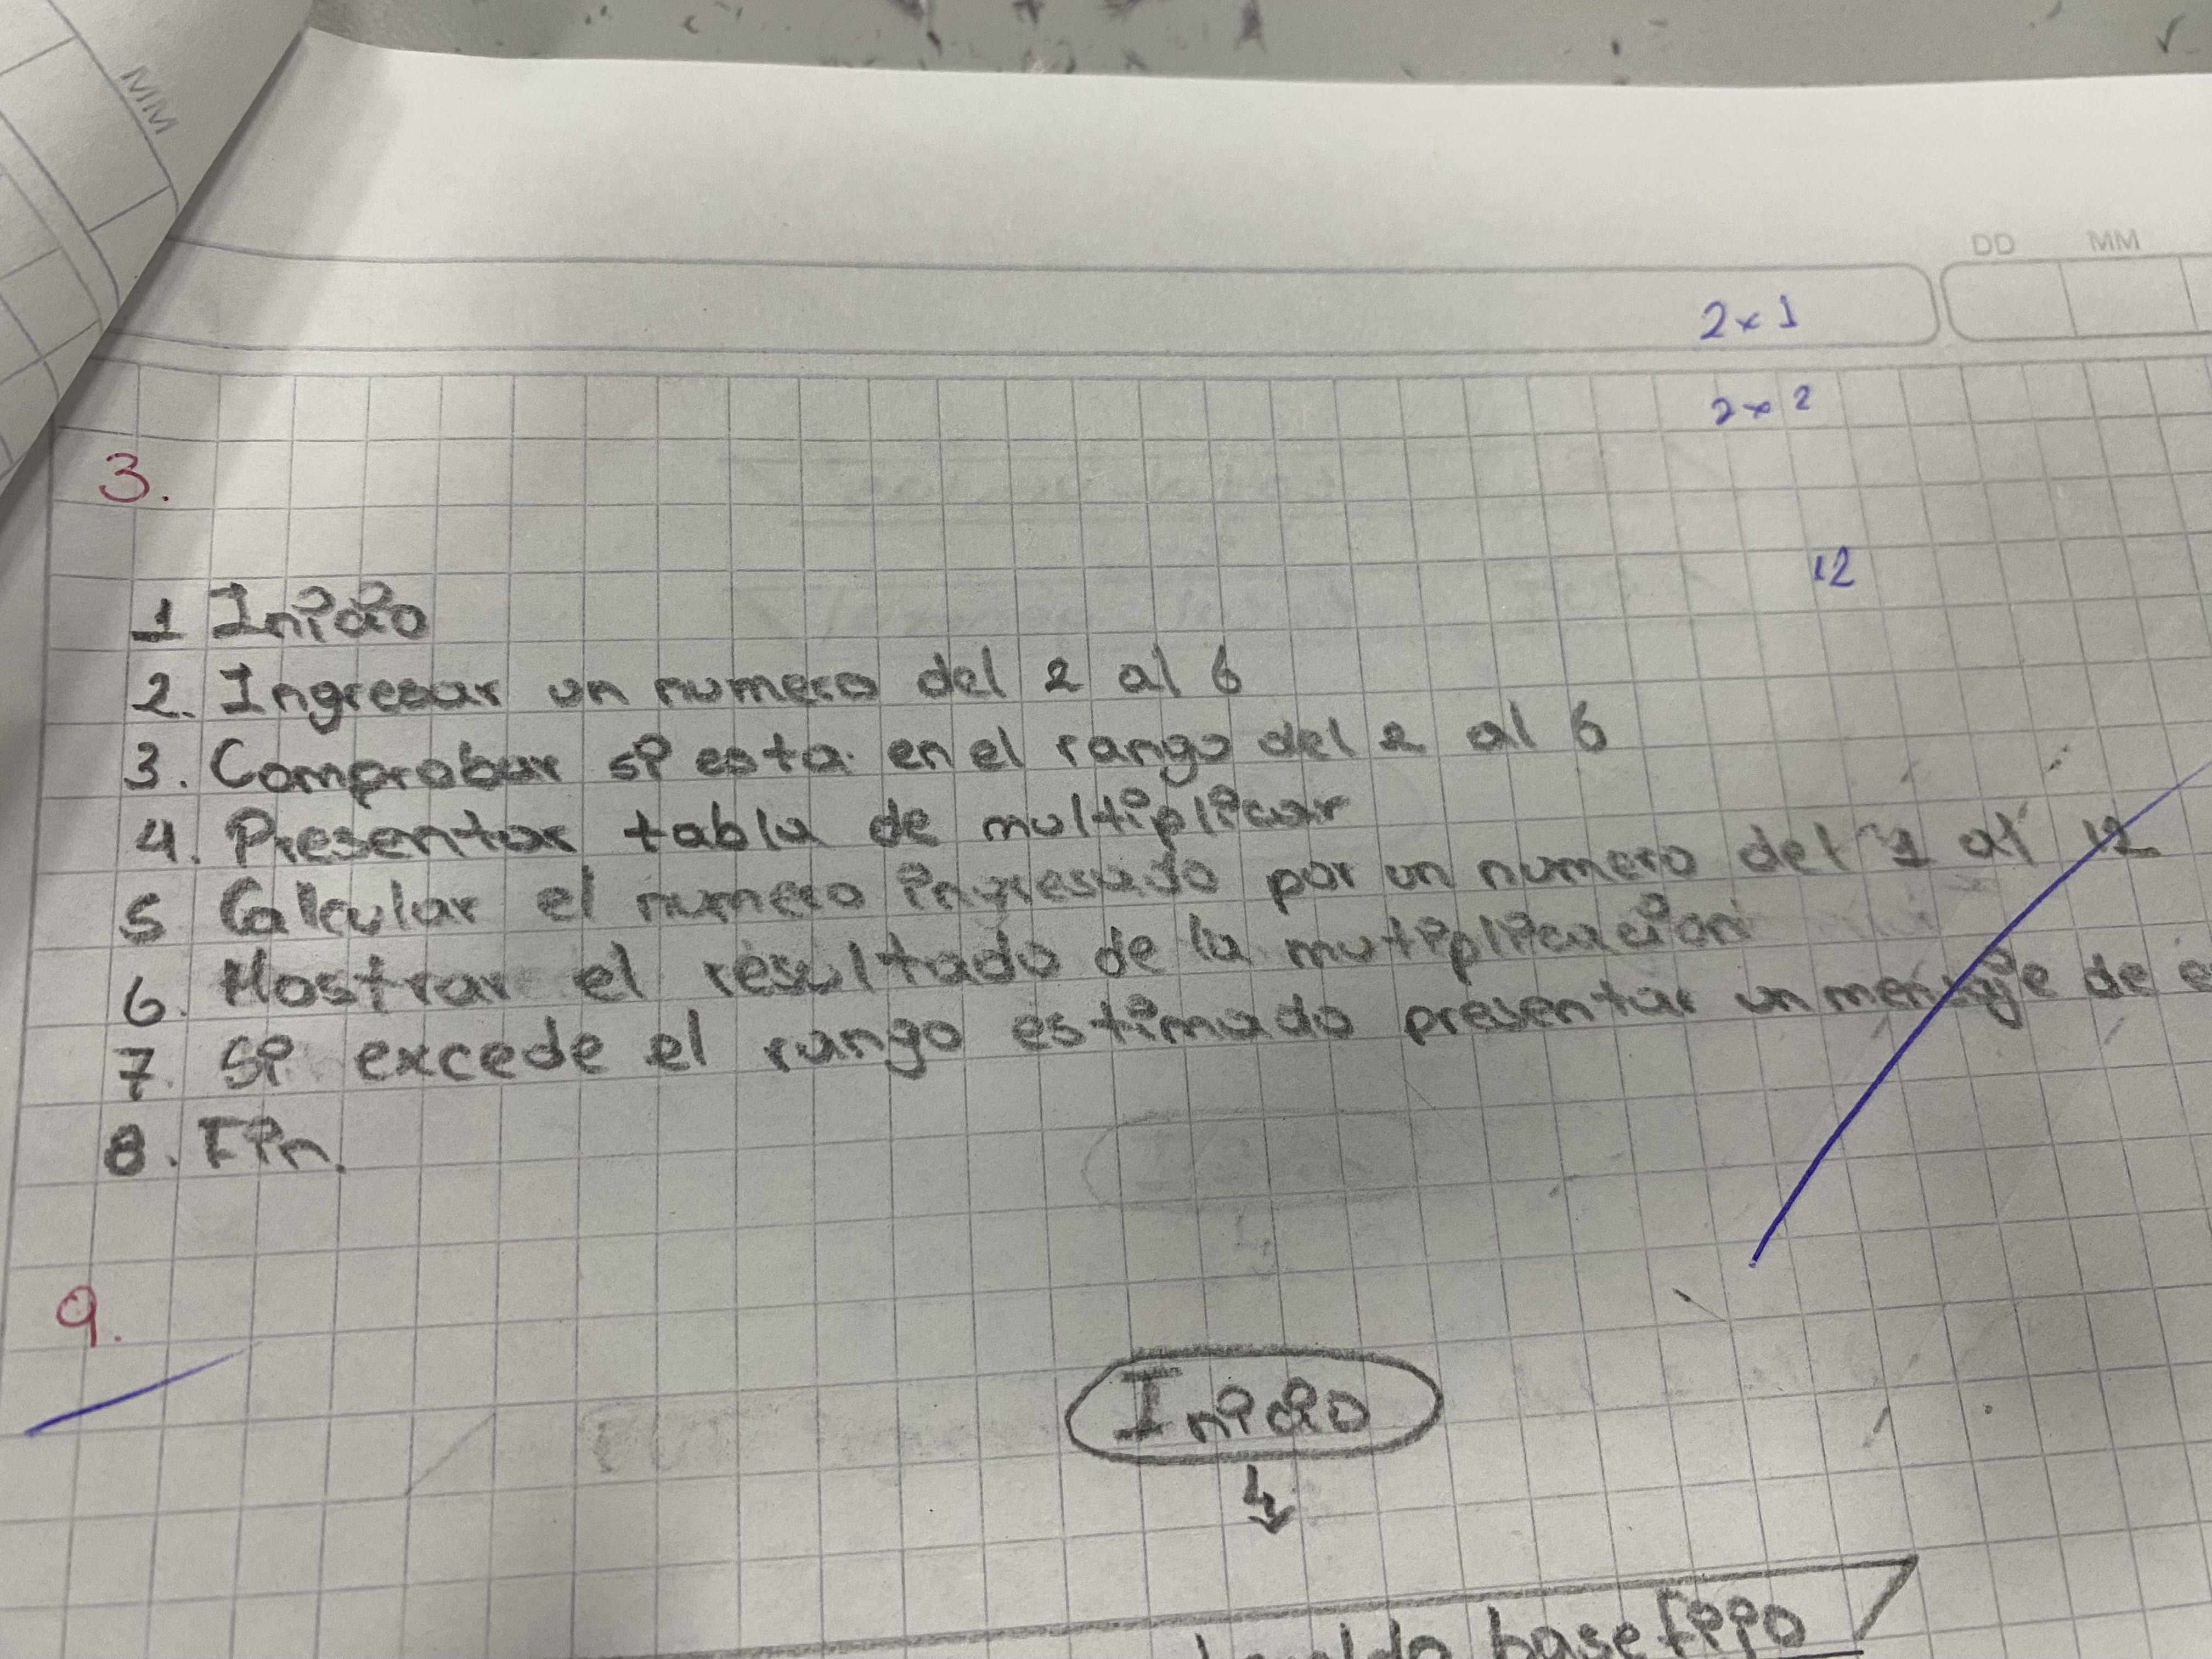 MM
DD MM
2x1
2x2
12
3.
1 Inicio
2. Ingresar un numero del 2 al 6
3. Comprobar si esta en el rango del 2 al 6
4. Presentar tabla de multiplicar
5. Calcular el numero ingresado por un numero del 1 al 12
6. Mostrar el resultado de la mutiplicación
7. Si excede el rango estimado presentar un mensaje de
8. Fin.
9.
Inicio
base fijo